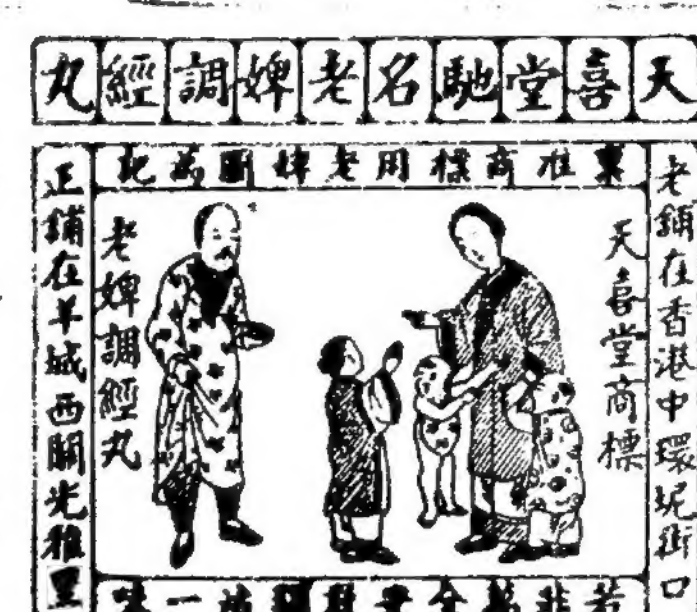 天喜堂馳名老婢調經丸
稟准商標用老婢圖為記
老鋪在香港中環坭街口
天喜堂商標
老婢調經丸
正鋪在羊城西關光雅里